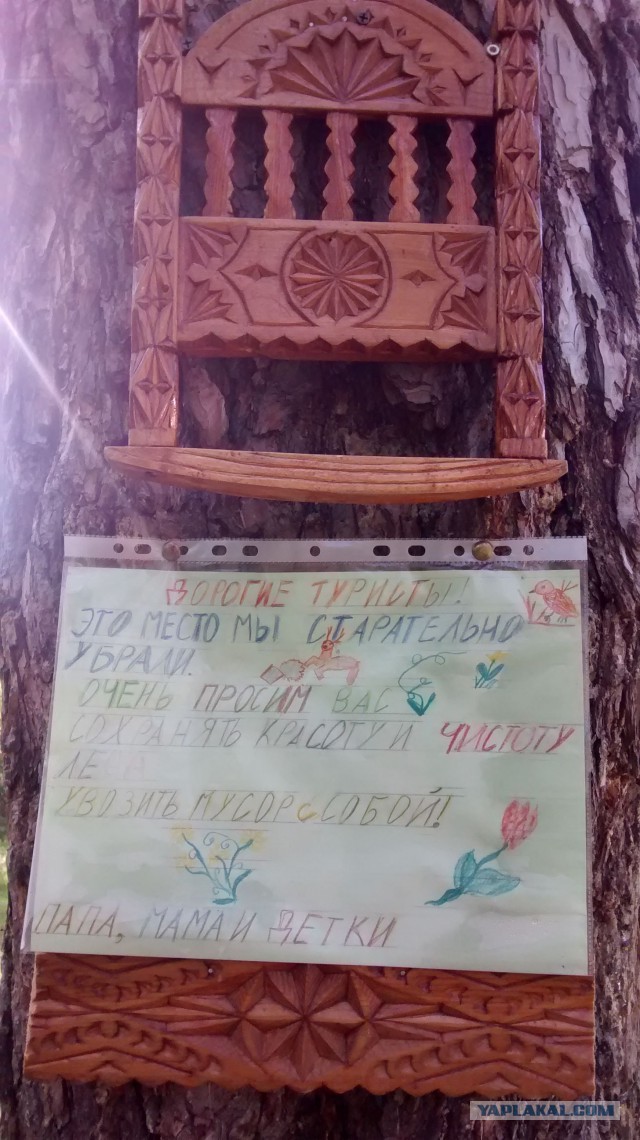 ДОРОГИЕ ТУРИСТЫ!
ЭТО МЕСТО МЫ СТАРАТЕЛЬНО
УБРАЛИ.
ОЧЕНЬ ПРОСИМ ВАС
СОХРАНЯТЬ КРАСОТУ И ЧИСТОТУ
ЛЕСА
УВОЗИТЬ МУСОР С СОБОЙ!
ПАПА, МАМА И ДЕТКИ
YAPLAKAL.COM